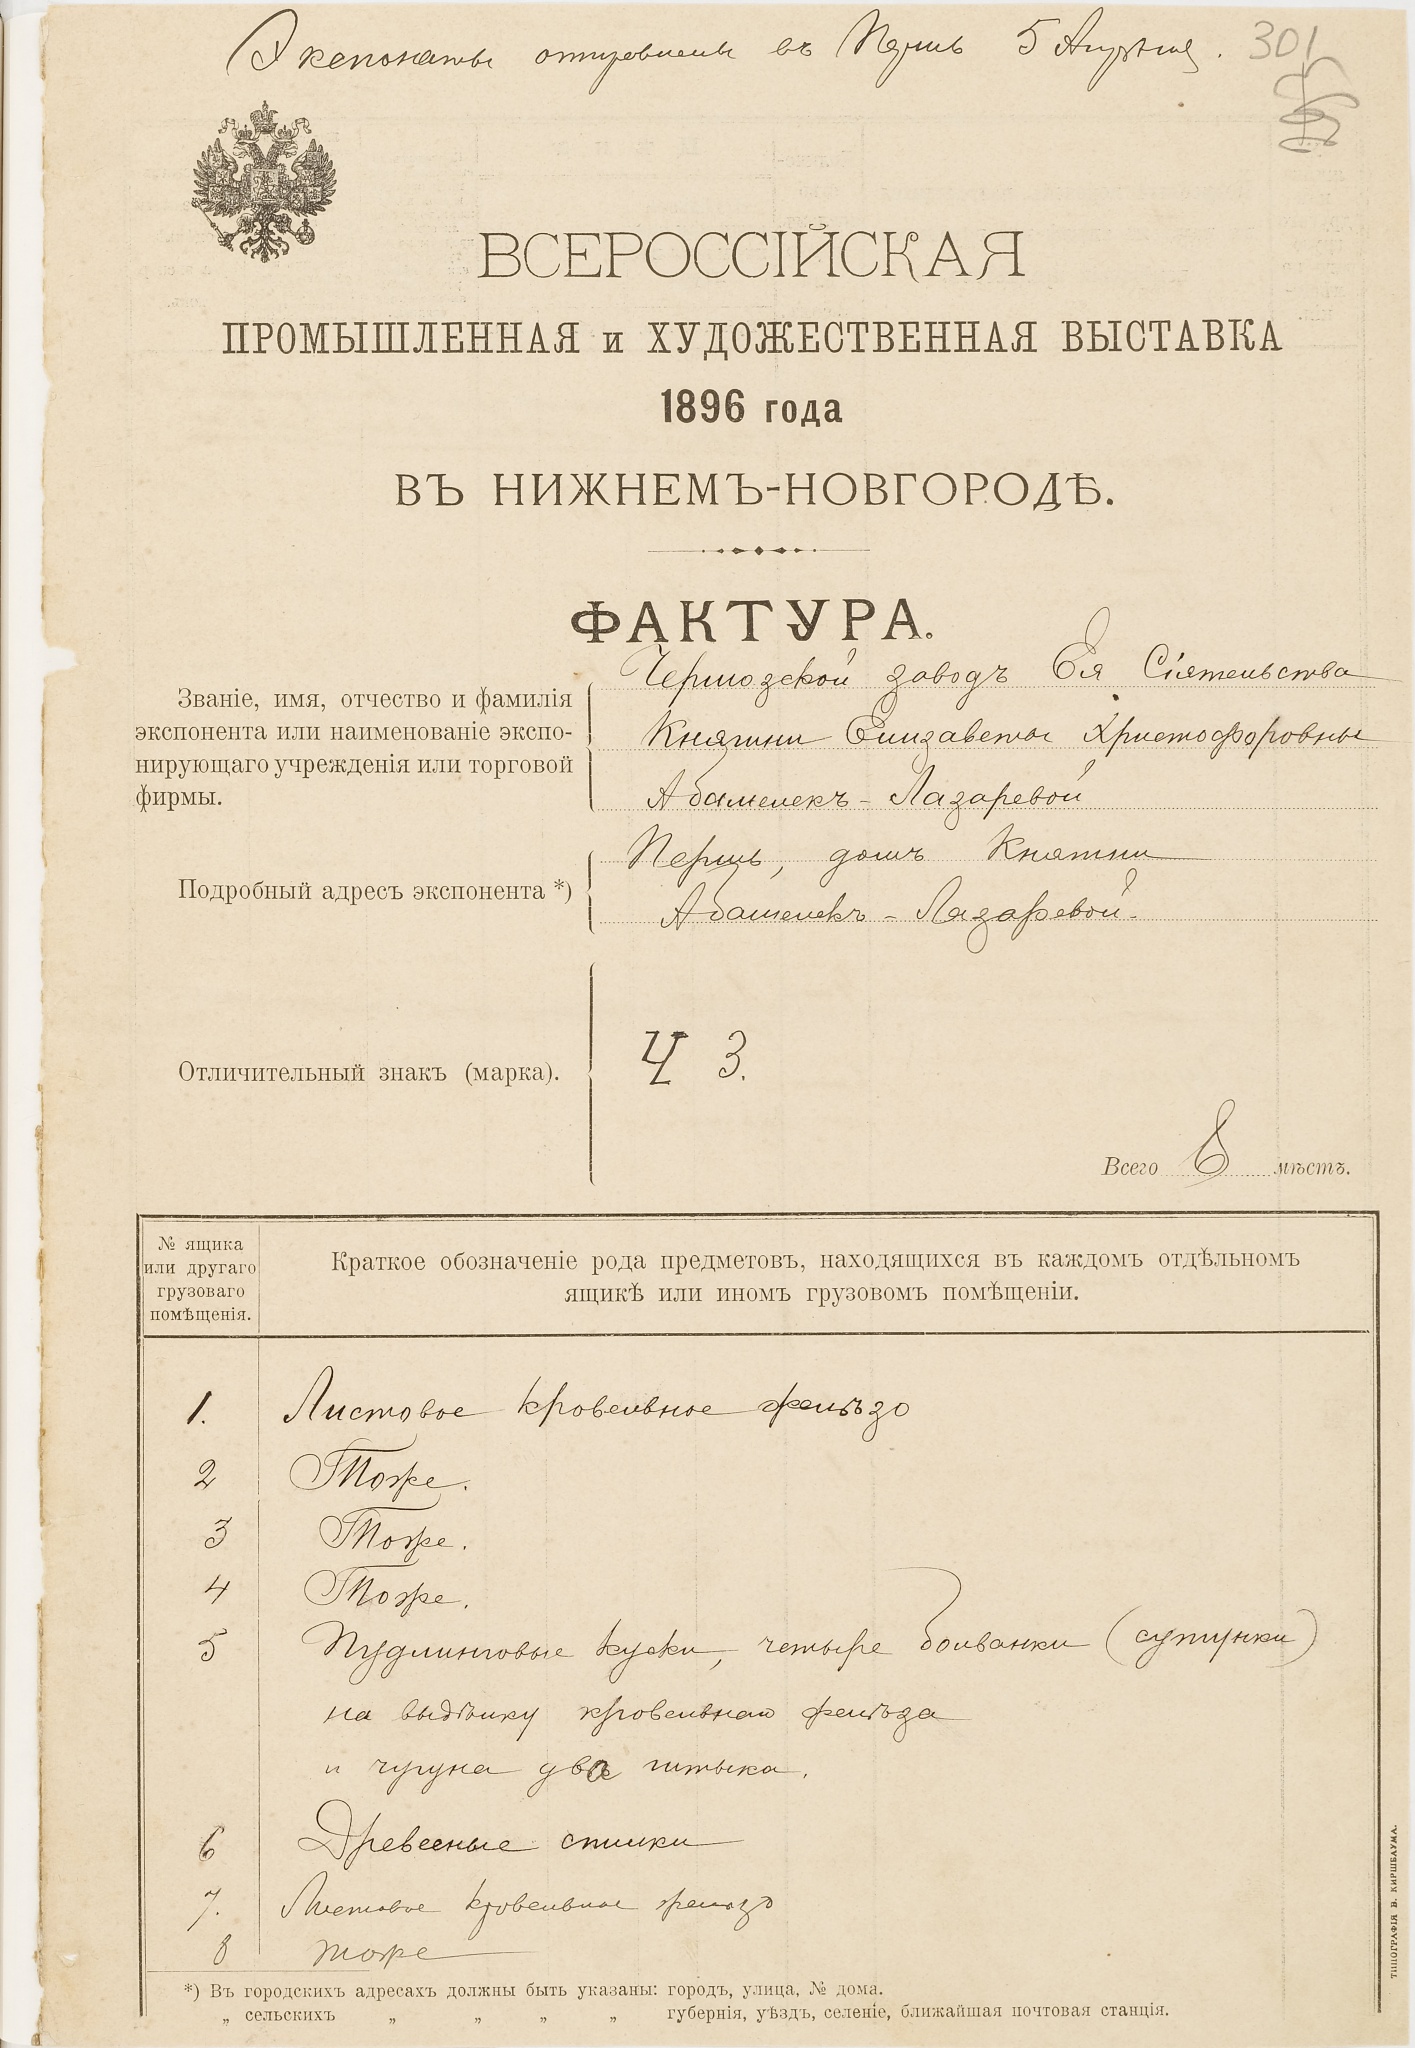 Экспонаты отправлены въ Пермь 5 Апрѣля.
301
ВСЕРОССІЙСКАЯ
ПРОМЫШЛЕННАЯ и ХУДОЖЕСТВЕННАЯ ВЫСТАВКА
1896 года
ВЪ НИЖНЕМЪ-НОВГОРОДѢ.
ФАКТУРА.
Званіе, имя, отчество и фамилія
экспонента или наименованіе экспо-
нирующаго учрежденія или торговой
фирмы.
Чермозской заводъ Ея Сіятельства
Княгини Елизаветы Христофоровны
Абамелекъ-Лазаревой
Подробный адресъ экспонента *)
Пермь, домъ Княгини
Абамелекъ-Лазаревой.
Отличительный знакъ (марка).
Ч З.
Всего 8 мѣстъ.
№ ящика
или другаго
грузоваго
помѣщенія.
Краткое обозначеніе рода предметовъ, находящихся въ каждомъ отдѣльномъ
ящикѣ или иномъ грузовомъ помѣщеніи.
1. Листовое кровельное желѣзо
2 Тоже.
3 Тоже.
4 Тоже.
5 Пудлинговые куски, четыре болванки (сутунки)
на выдѣлку кровельнаго желѣза
и чугуна два штыка.
6 Древесные спилки
7. Листовое кровельное желѣзо
8 тоже
*) Въ городскихъ адресахъ должны быть указаны: городъ, улица, № дома.
„ сельскихъ „ „ „ „ губернія, уѣздъ, селеніе, ближайшая почтовая станція.
ТИПОГРАФІЯ Б. КИРШБАУМА.